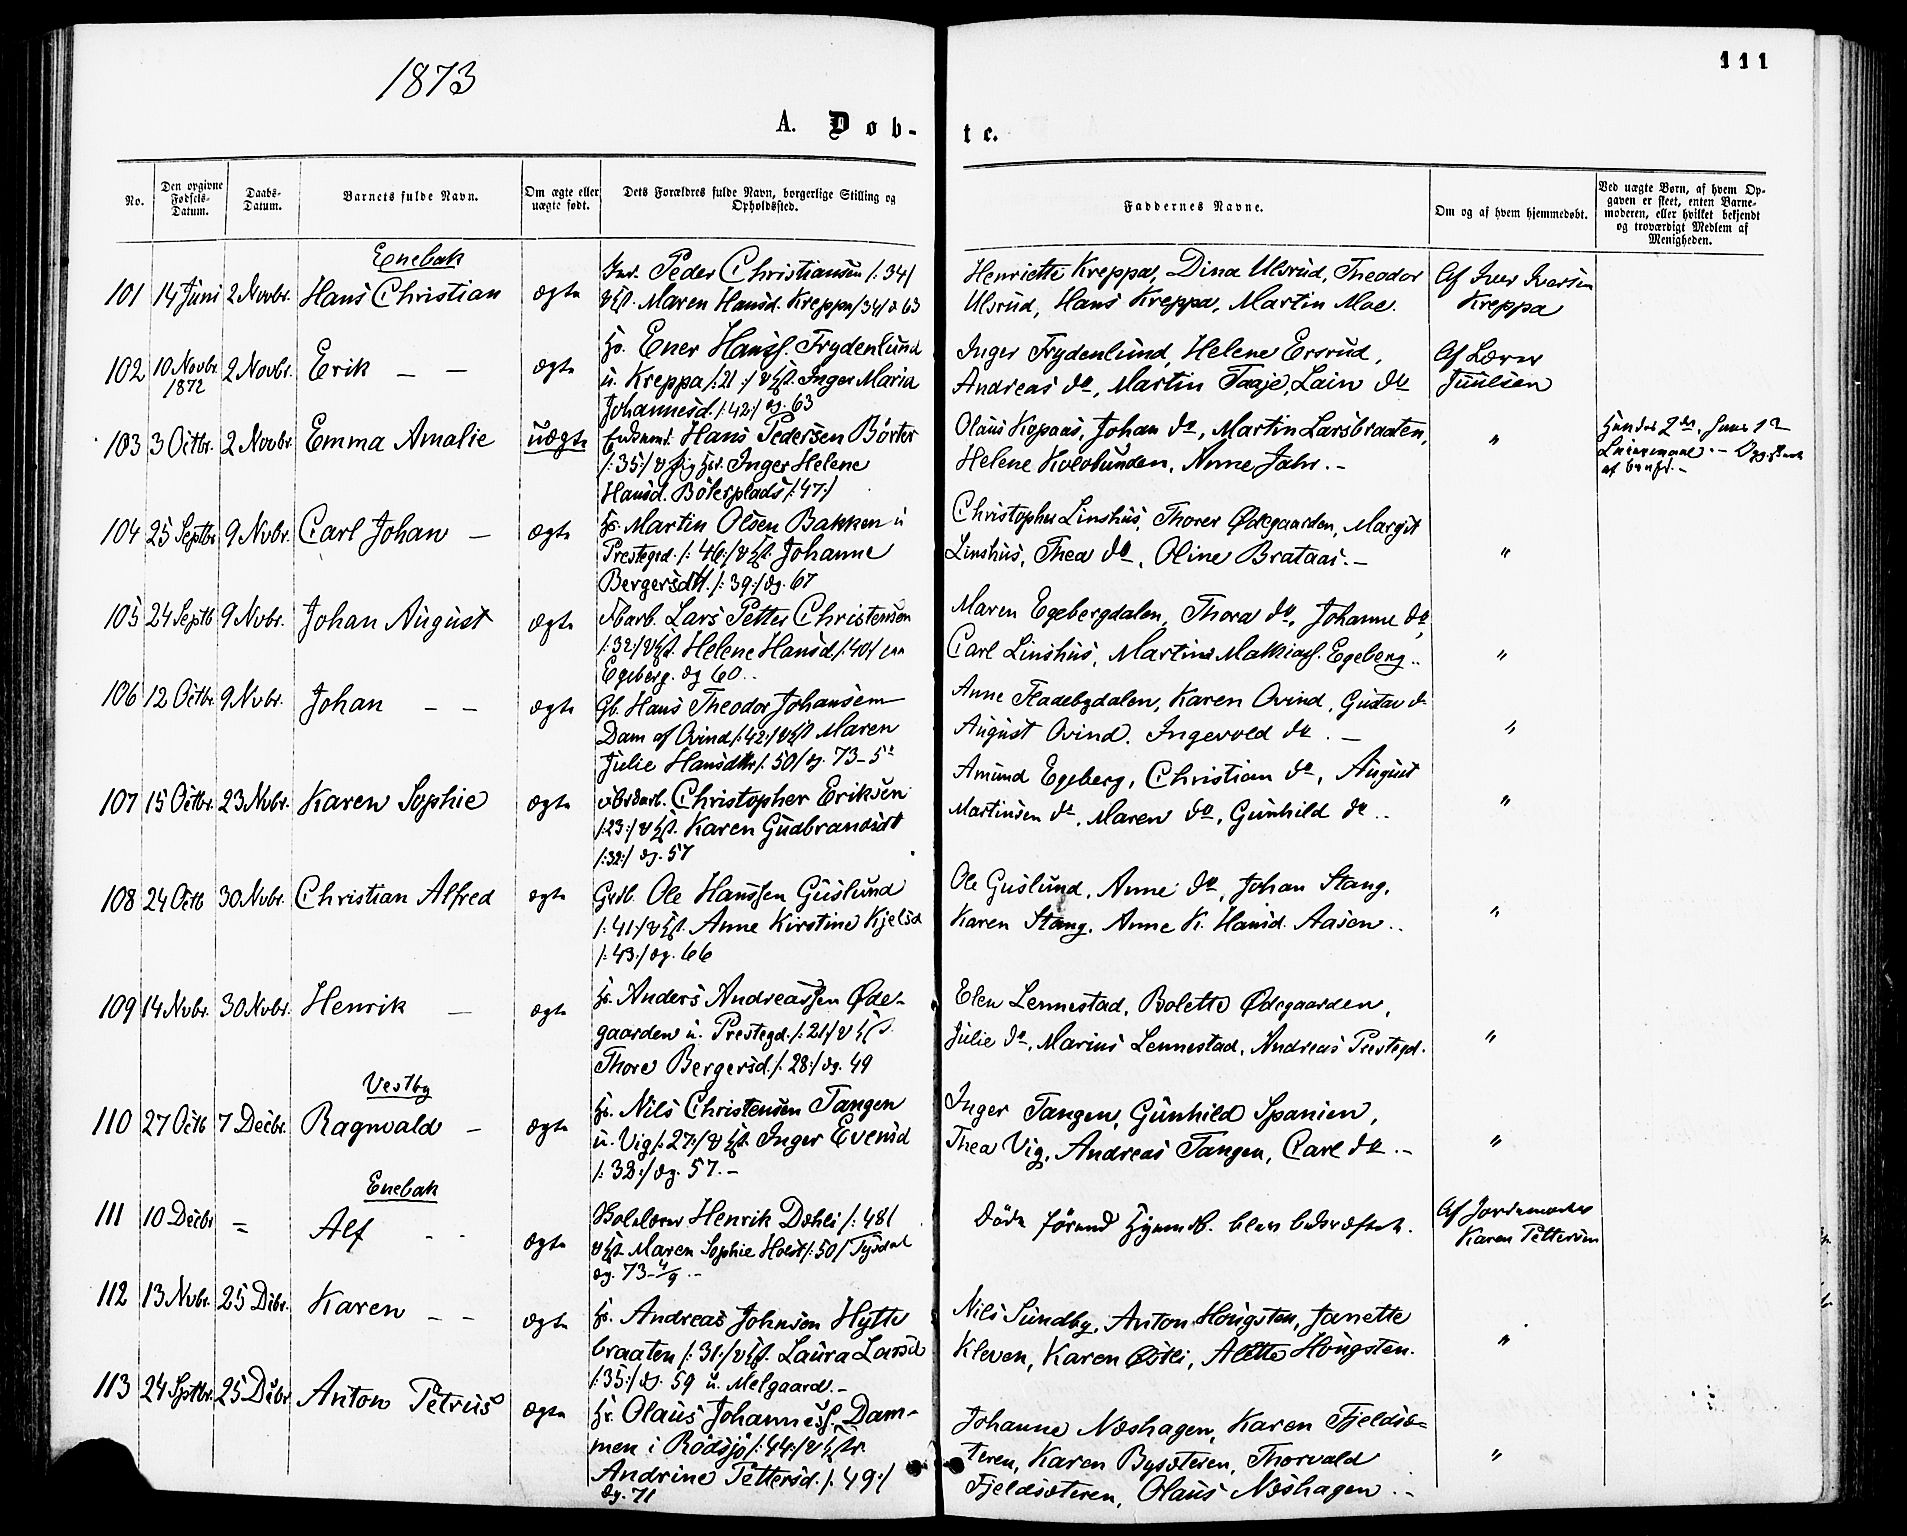 1873
111
A. Døb-
te.
No.
Den opgivne Fødsels-Datum.
Daabs-Datum.
Barnets fulde Navn.
Om ægte eller uægte født.
Dets Forældres fulde Navn, borgerlige Stilling og Opholdssted.
Faddernes Navne.
Om og af hvem hjemmedøbt.
Ved uægte Børn, af hvem Opgaven er skeet, enten Barnemoderen, eller hvilket bekjendt og troværdigt Medlem af Menigheden.
Enebak
101 14 Juni 2 Novbr. Hans Christian ægte
Peder Christiansen /:34/
Maren Hansd. Kreppa /34/ d 63
Henriette Kreppa, Dina Ulsrud, Theodor
Ulsrud, Hans Kreppa, Martin Moe.
Af Iver Iversen
Kreppa
102 10 Novbr. 1872 2 Novbr. Erik — — ægte
Hs. Ener Hanss. Frydenlund
u. Kreppa /:21:/ & Hst. Inger Maria
Johannesd. /:42:/ dg. 63
Inger Frydenlund, Helene Ersrud,
Andreas do, Martin Taaje, Lain do
Af Lærer
Juulsen
103 3 Octbr. 2 Novbr. Emma Amalie uægte
Hans Pedersen Børter
/:35:/ & Pig Inger Helene
Hansd. Bölerplads /:47:/
Olaus Kopaas, Johan do, Martin Larsbraaten,
Helene Kololunden, Anne Jahr. —
"
104 25 Septbr 9 Nvbr. Carl Johan — ægte
Hs. Martin Olsen Bakken u
Prestegd. /:46:/ & Hst. Johanne
Bergersdtt. /:39:/ dg. 67
Christopher Linshus, Thorer Ødegaarden, Margit
Linshus, Thea do, Oline Brataas. —
"
105 24 Septb 9 Nvbr. Johan August ægte
Lars Petter Christensen
/:32:/ & Hst. Helene Hansd /:40/
Egeberg. dg 60..
Maren Egebergdalen, Thora do, Johanne do,
Carl Linshus, Martins Mathias. Egeberg..
"
106 12 Octbr. 9 Nvbr. Johan — — ægte
Gb. Hans Theodor Johansen
Dam af Ovind /:42:/ & Hst Maren
Julie Hansdtr /:50/ dg. 73-5
Anne Fladebydalen, Karen Ovind, Gustav do
August Ovind. Ingevold do. —
"
107 15 Octbr. 23 Nvbr. Karen Sophie ægte
Christopher Eriksen
/:23:/ & Hst. Karen Gudbrandsdt
/:32:/ dg. 57
Amund Egeberg, Christian do, August
Martinsen do, Maren do, Gunhild do..
"
108 24 Octb 30 Nvbr. Christian Alfred ægte
Grdb. Ole Hanssen Guslund
/:41:/ & Hst. Anne Kirstine Kjelsd
/:43:/ dg. 66
Ole Guslund, Anne do, Johan Stang,
Karen Stang, Anne K. Hansd. Aasen..
"
109 14 Nvbr. 30 Nvbr. Henrik — ægte
Hs. Anders Andreassen Øde-
gaarden u. Prestegd. /:21/ & Hst.
Thore Bergersd. /:28:/ dg. 49
Elen Lennestad, Bolette Ødegaarden,
Julie do, Marius Lennestad, Andreas Prestegd.
"
Vestby
110 27 Octb 7 Decbr. Ragnvald — ægte
Hs. Nils Christensen Tangen
u. Vig /:27:/ & Hst. Inger Evensd
/:38:/ dg. 57. —
Inger Tangen, Gunhild Spanien,
Thea Vig, Andreas Tangen, Carl do. —
"
Enebak
111 10 Decbr = Alf - - ægte
Skolelærer Henrik Dæhli /:48/
& Hst. Maren Sophie Holst /:50/
dg. 73-4/9. —
Døde førend Hjemdb. blev bekræftet.
Af Jordemoder
Karen Pettersen
112 13 Nvbr. 25 Dcbr. Karen — — ægte
Hs. Andreas Johnsen Hytte
braaten /:31:/ & Hst. Laura Larsd
/:35:/ dg. 59 u. Melgaard. —
Nils Sundby, Anton Hougsten, Janette
Kleven, Karen Østli, Alette Hougsten.
"
113 24 Sptbr. 25 Dcbr Anton Petrus ægte
Hs. Olaus Johanness. Dam-
men i Rödsjö /:44:/ & Hstr.
Andrine Pettersd. /:49:/
dg. 71
Johanne Næshagen, Karen Fjeldsæ-
teren, Karen Bysæteren, Thorvald
Fjeldsæteren, Olaus Næshagen. —
"